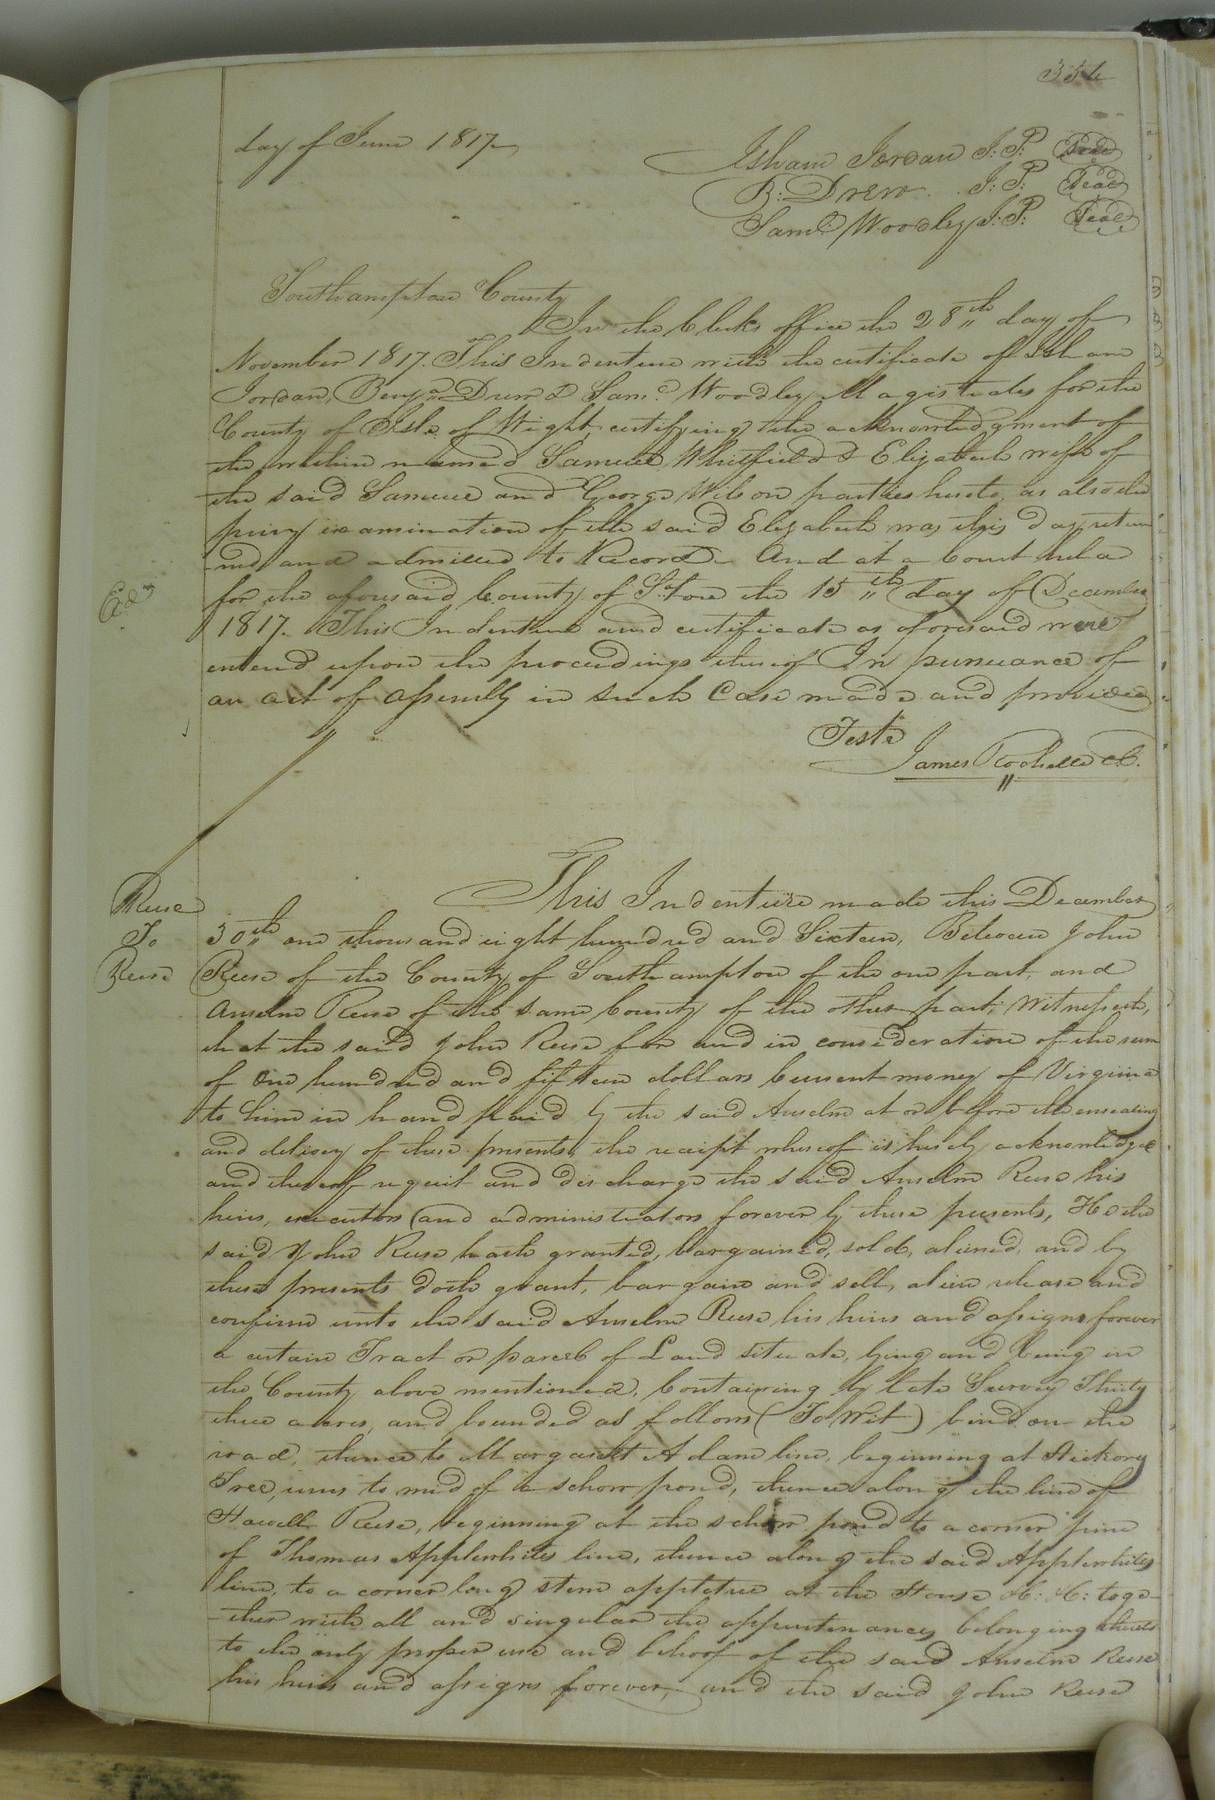 day of June 1817
Isham Jordan J: P: Seal
B: Drew J: P: Seal
Saml. Woodley J: P: Seal
Southampton County
In the Clerks office the 28th day of
November 1817. This Indenture with the certificate of Isham
Jordan, Benjn. Drew & Saml. Woodley Magistrates for the
County of Isle of Wight, certifying the acknowledgment of
the within named Samuel Whitfield & Elizabeth wife of
the said Samuel and George Wilson parties hereto, as also the
privy examination of the said Elizabeth was this day retur
ned and admitted to Record. And at a Court held
for the aforesaid County of S.ton the 15th day of December
1817. This Indenture and certificate as aforesaid were
entered upon the proceedings thereof In pursuance of
an act of Assembly in such Case made and provided
Teste
James Rochelle C.
Reese
To
Reese
This Indenture made this December
30th one thousand eight hundred and Sixteen, Between John
Reese of the County of Southampton of the one part, and
Anselm Reese of the same County of the other part; Witnesseth,
that the said John Reese for and in consideration of the sum
of One hundred and fifteen dollars Current money of Virginia
to him in hand paid by the said Anselm at or before the ensealing
and delivery of these presents, the receipt whereof is hereby acknowledge
and thereof acquit and discharge the said Anselm Reese his
heirs, executors and administrators forever by these presents, He the
said John Reese hath granted, bargained, sold, aliened, and by
these presents doth grant, bargain and sell, alien release and
confirm unto the said Anselm Reese his heirs and assigns forever
a certain Tract or parcel of Land situate, lying and being in
the County above mentioned, Containing by late Survey Thirty
three acres, and bounded as follows (To Wit) bind on the
road, thence to Margaret Adams line, beginning at Hickory
Tree, runs to mid of a schow pond, thence along the line of
Howell Reese, beginning at the schow pond to a corner pine
of Thomas Applewhites line, thence along the said Applewhites
line, to a corner long stem appletree at the House H: H: toge-
ther with all and singular the appurtenances belonging thereto
to the only proper use and behoof of the said Anselm Reese
his heirs and assigns forever, and the said John Reese